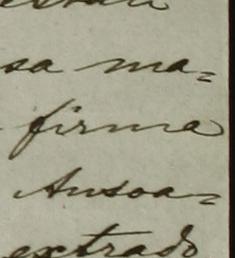 sa ma=
firma
Ansoa=
extrado